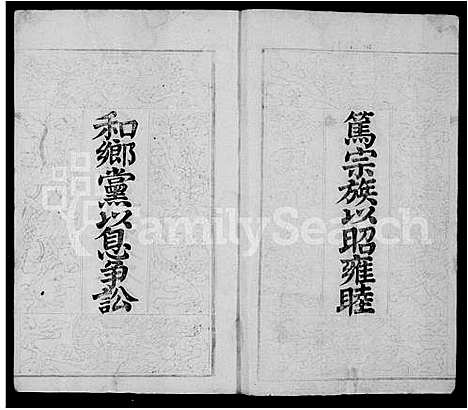 篤宗族以昭雍睦
和鄉黨以息爭訟
FamilySearch